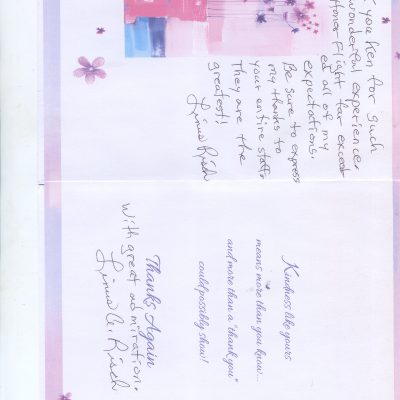 you Ken for such
wonderful experience.
Honor Flight far exceed
ed all of my
expectations.
Be sure to express
my thanks to
your entire staff.
They are the
greatest!
Linus Risch
Kindness like yours
means more than you know...
and more than a "thank you"
could possibly show!
Thanks Again
With great admiration,
Linus C. Risch